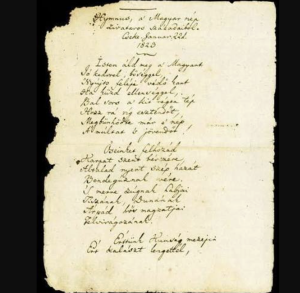 Hymnus, a' Magyar nép
zivataros századaiból.
Cseke Januar. 22d.
1823
Isten áldd meg a' Magyart
Jó kedvvel, bőséggel,
Nyújts feléje védő kart
Ha küzd ellenséggel;
Bal sors a' kit régen tép
Hozz rá víg esztendőt
Megbűnhődte már e' nép
A' multat 's jövendőt,
Őseinket felhozád
Kárpát szent bérczére,
Általad nyert szép hazát
Bendegúznak vére.
'S merre zúgnak habjai
Tiszának, Dunának
Árpád hős magzatjai
Felvirágozának.
Értünk Kunság mezején
Ért kalászt lengettél,